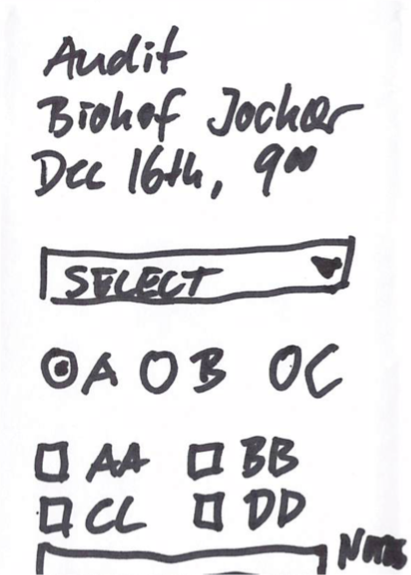 Audit
Biohof Jocher
Dec 16th, 9⁰⁰
SELECT
A B C
AA BB
CC DD
Notes